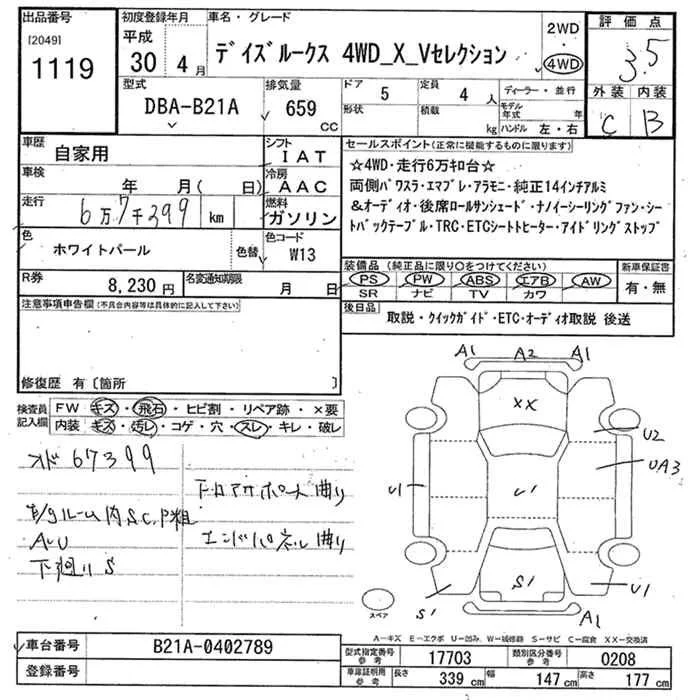 出品番号
[2049]
1119
初度登録年月
平成
30 4 月
車名・グレード
デイズルークス 4WD_X_Vセレクション
2WD
4WD
評価点
3.5
外装 内装
C B
型式
DBA-B21A
排気量
659
CC
ドア
5
形状
定員
4 人
積載
kg
ディーラー・並行
モデル年式 年
ハンドル 左・右
車歴
自家用
車検
年 月( 日)
走行
6万7千399 km
色
ホワイトパール
色替
R券
8,230円
名変通知期限
月 日
シフト
IAT
冷房
AAC
燃料
ガソリン
色コード
W13
セールスポイント(正常に機能するものに限ります)
☆4WD・走行6万キロ台☆
両側パワスラ・エマブレ・アラモニ・純正14インチアルミ
&オーディオ・後席ロールサンシェード・ナノイーシーリングファン・シー
トバックテーブル・TRC・ETCシートヒーター・アイドリングストップ
装備品(純正品に限り○をつけてください)
PS PW ABS エアB AW
SR ナビ TV カワ
新車保証書
有・無
後日品
取説・クイックガイド・ETC・オーディオ取説 後送
注意事項申告欄(不具合内容等は具体的に記入して下さい)
修復歴 有〔箇所 〕
検査員記入欄
FW キズ・飛石・ヒビ割・リペア跡・×要
内装 キズ・汚レ・コゲ・穴・スレ・キレ・破レ
オド 67399
ルーム内SC,P粗
AU
下廻りS
下ロアサポート曲り
エンドパネル曲り
A1 A2 A1
XX
U2
UA3
U1
U1
S1
S1
U1
A1
スペア
A-キズ E-エクボ U-凹み W-補修跡 S-サビ C-腐食 XX-交換済
車台番号
B21A-0402789
登録番号
型式指定番号 参考
17703
類別区分番号 参考
0208
車庫証明用 参考
長さ 339 cm 幅 147 cm 高さ 177 cm